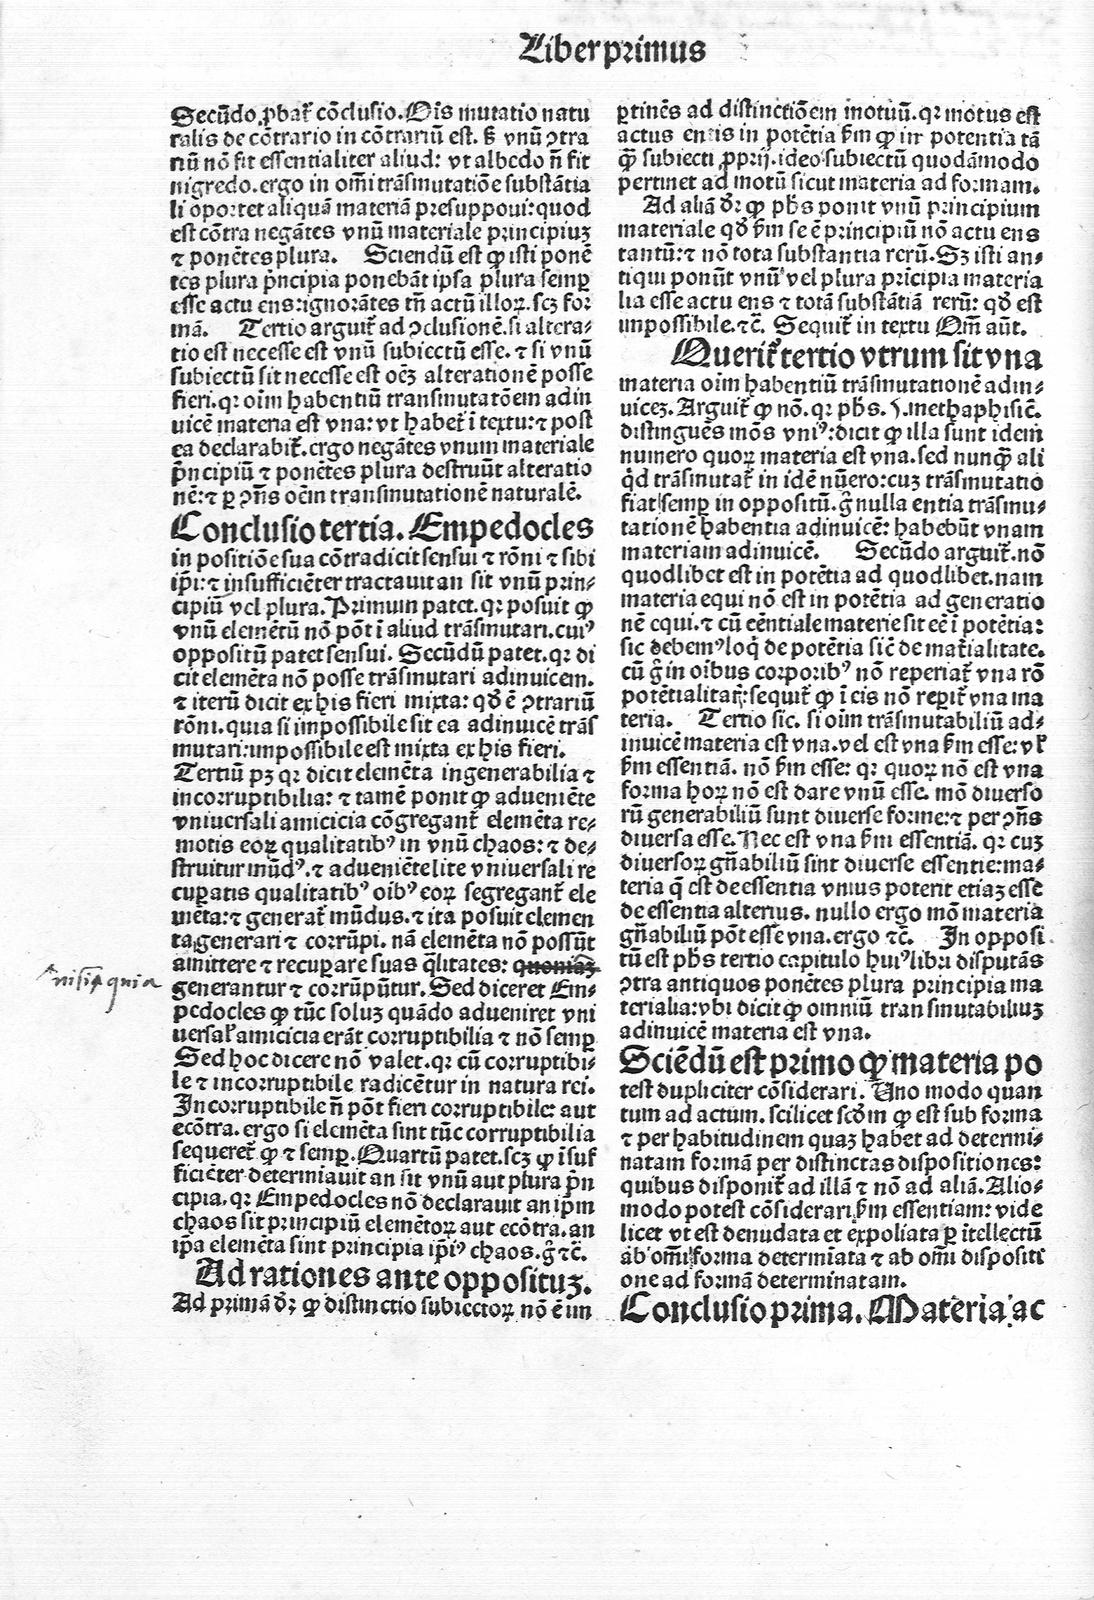 Liber primus
Secūdo ꝓbat᷑ cōclusio. Oīs mutatio natu
ralis de cōtrario in cōtrariū est. sꝫ vnū ꝯtra
riū nō fit essentialiter aliud: vt albedo n̄ fit
nigredo. ergo in om̄i trāsmutatiōe substātia
li oportet aliquā materiā presupponi: quod
est cōtra negātes vnū materiale principiuꝫ
⁊ ponētes plura. Sciendū est ꝙ isti ponē
tes plura pͥncipia ponebāt ipsa plura semꝑ
esse actu ens: ignorātes tn̄ actū illoꝝ. scꝫ for
mā. Tertio arguit᷑ ad ꝯclusionē. si altera⸗
tio est necesse est vnū subiectū esse. ⁊ si vnū
subiectū sit necesse est oēꝫ alterationē posse
fieri. qꝛ oīm habentiū transmutatōem adin
uicē materia est vna: vt habet᷑ ī textu: ⁊ post
ea declarabit᷑. ergo negātes vnum materiale
pͥncipiū ⁊ ponētes plura destruūt alteratio
nē: ⁊ ꝑ ꝯn̄s oēm transmutationē naturalē.
Conclusio tertia. Empedocles
in positiōe sua cōtradicit sensui ⁊ rōni ⁊ sibi
ip̄i: ⁊ insufficiēter tractauit an sit vnū prin⸗
cipiū vel plura. Primum patet. qꝛ posuit ꝙ
vnū elemētū nō pōt ī aliud trāsmutari. cuiꝰ
oppositū patet sensui. Secūdū patet. qꝛ di
cit elemēta nō posse trāsmutari adinuicem.
⁊ iterū dicit ex his fieri mixta: qd̄ ē ꝯtrariū
rōni. quia si impossibile sit ea adinuicē trās
mutari: impossibile est mixta ex his fieri.
Tertiū pꝫ qꝛ dicit elemēta ingenerabilia ⁊
incorruptibilia: ⁊ tamē ponit ꝙ adueniēte
vniuersali amicicia cōgregant᷑ elemēta re⸗
motis eoꝝ qualitatibꝰ in vnū chaos: ⁊ de⸗
struitur mūdꝰ. ⁊ adueniēte lite vniuersali re
cuꝑatis qualitatibꝰ oibꝰ eoꝝ segregant᷑ ele
mēta: ⁊ generat᷑ mūdus. ⁊ ita posuit elemen
ta generari ⁊ corrūpi. nā elemēta nō possūt
amittere ⁊ recuꝑare suas q̄litates: quoniaꝫ
nisi quia
generantur ⁊ corrūpūtur. Sed diceret Em⸗
pedocles ꝙ tūc soluꝫ quādo adueniret vni
uersal᷑ amicicia erāt corruptibilia ⁊ nō semꝑ
Sed hoc dicere nō valet. qꝛ cū corruptibi⸗
le ⁊ incorruptibile radicētur in natura rei.
Incorruptibile n̄ pōt fieri corruptibile: aut
ecōtra. ergo si elemēta sint tūc corruptibilia
sequeret᷑ ꝙ ⁊ semꝑ. Quartū patet. scꝫ ꝙ īsuf
ficiēter determiauit an sit vnū aut plura pͥn
cipia. qꝛ Empedocles nō declarauit an ip̄m
chaos sit principiū elemētoꝝ aut ecōtra. an
ip̄a elemēta sint principia ip̄iꝰ chaos. gͦ ⁊c̄.
Ad rationes ante oppositūꝫ.
Ad primā dꝛ ꝙ distinctio subiectoꝝ nō ē im
ꝑtinēs ad distinctiōem motuū. qꝛ motus est
actus entis in potētia ẜm ꝙ in potentia tā
ꝙ̄ subiecti ꝓprij. ideo subiectū quodāmodo
pertinet ad motū sicut materia ad formam.
Ad aliā dꝛ ꝙ ph̄s ponit vnū principium
materiale qd̄ ẜm se ē principiū nō actu ens
tantū: ⁊ nō tota substantia rerū. Sꝫ isti an⸗
tiqui ponūt vnū vel plura prīcipia materia
lia esse actu ens ⁊ totā substātiā rerū: qd̄ est
impossibile. ⁊c̄. Sequit᷑ in textu Om̄ aūt.
Querit᷑ tertio vtrum sit vna
materia oīm habentiū trāsmutationē adin⸗
uiceꝫ. Arguit᷑ ꝙ nō. qꝛ ph̄s. 5. methaphisic̄.
distinguēs mōs vniꝰ: dicit ꝙ illa sunt idem
numero quoꝝ materia est vna. sed nunꝙ̄ ali
qͥd trāsmutat᷑ in idē nūero: cuꝫ trāsmutatio
fiat semꝑ in oppositū. gͦ nulla entia trāsmu⸗
tationē habentia adinuicē: habebūt vnam
materiam adinuicē. Secūdo arguit᷑. nō
quodlibet est in potētia ad quodlibet. nam
materia equi nō est in potētia ad generatio
nē equi. ⁊ cū eēntiale materie sit eē ī potētia:
sic debemꝰ loqͥ de potētia sic̄ de mat̄ialitate.
cū gͦ in oībus corporibꝰ nō reperiat᷑ vna rō
potētialitat᷑: sequit᷑ ꝙ ī eis nō reꝑit᷑ vna ma
teria. Tertio sic. si oīm trāsmutabiliū ad⸗
inuicē materia est vna. vel est vna ẜm esse: vl᷑
ẜm essentiā. nō ẜm esse: qꝛ quoꝝ nō est vna
forma hoꝝ nō est dare vnū esse. mō diuerso
rū generabiliū sunt diuerse forme: ⁊ per ꝯn̄s
diuersa esse. Nec est vna ẜm essentiā. qꝛ cuꝫ
diuersoꝝ gn̄abiliū sint diuerse essentie: ma⸗
teria q̄ est de essentia vnius poterit etiaꝫ esse
de essentia alterius. nullo ergo mō materia
gn̄abiliū pōt esse vna. ergo ⁊c̄. In opposi
tū est ph̄s tertio capitulo huiꝰ libri disputās
ꝯtra antiquos ponētes plura principia ma
terialia: vbi dicit ꝙ omniū transmutabiliuꝫ
adinuicē materia est vna.
Sciēdū est primo ꝙ materia po
test dupliciter cōsiderari. Uno modo quan
tum ad actum. scilicet scd̄m ꝙ est sub forma
⁊ per habitudinem quaꝫ habet ad determi⸗
natam formā per distinctas dispositiones:
quibus disponit᷑ ad illā ⁊ nō ad aliā. Alio⸗
modo potest cōsiderari ẜm essentiam: vide
licet vt est denudata et expoliata ꝑ itellectū
ab om̄i forma determīata ⁊ ab om̄i dispositi
one ad formā determinatam.
Conclusio prima. Materia ac